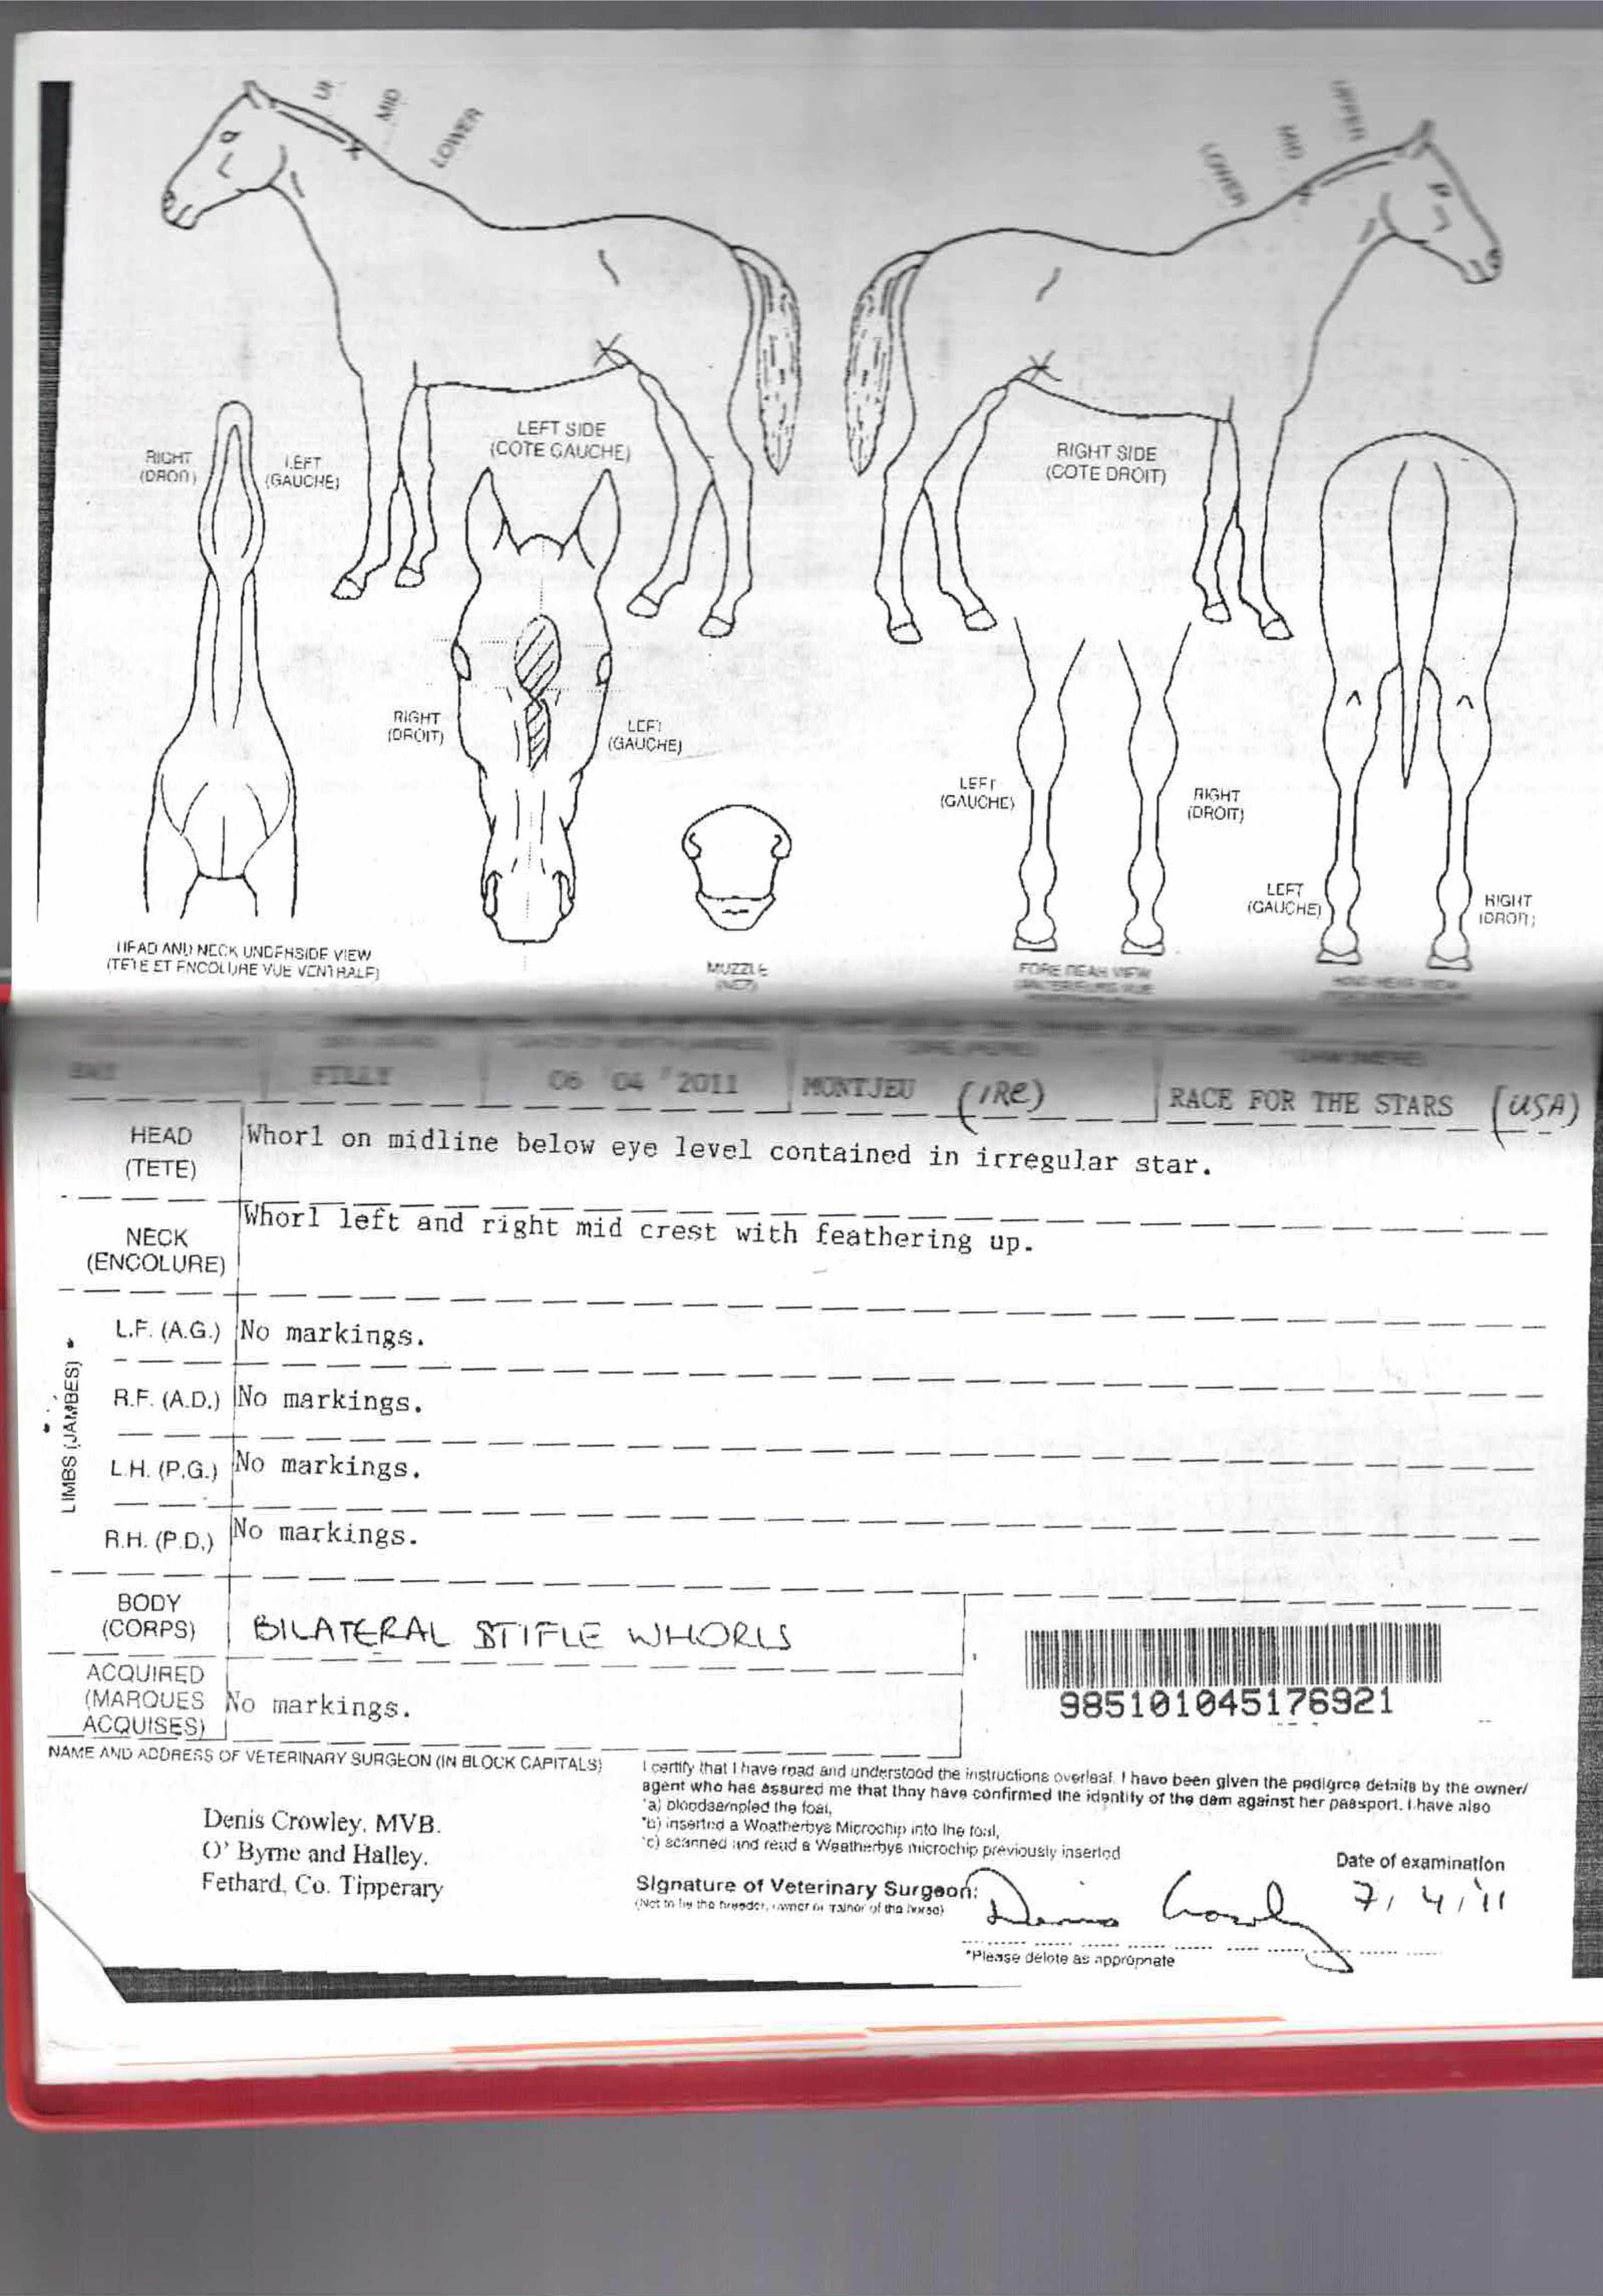 MID
LOWER
UPPER
MID
LOWER
LEFT SIDE
(COTE GAUCHE)
RIGHT SIDE
(COTE DROIT)
RIGHT
LEFT
(GAUCHE)
RIGHT
(DROIT)
LEFT
(GAUCHE)
LEFT
(GAUCHE)
RIGHT
(DROIT)
LEFT
(GAUCHE)
RIGHT
(DROIT)
HEAD AND NECK UNDERSIDE VIEW
(TETE ET ENCOLURE VUE VENTRALE)
MUZZLE
(NEZ)
FORE REAR VIEW
BAY FILLY 06 04 2011 MONTJEU (IRE) RACE FOR THE STARS (USA)
HEAD
(TETE)
Whorl on midline below eye level contained in irregular star.
NECK
(ENCOLURE)
Whorl left and right mid crest with feathering up.
LIMBS (JAMBES)
L.F. (A.G.) No markings.
R.F. (A.D.) No markings.
L.H. (P.G.) No markings.
R.H. (P.D.) No markings.
BODY
(CORPS)
BILATERAL STIFLE WHORLS
ACQUIRED
(MARQUES
ACQUISES)
No markings.
985101045176921
NAME AND ADDRESS OF VETERINARY SURGEON (IN BLOCK CAPITALS)
Denis Crowley, MVB.
O' Byrne and Halley.
Fethard, Co. Tipperary
I certify that I have read and understood the instructions overleaf. I have been given the pedigree details by the owner/
agent who has assured me that they have confirmed the identity of the dam against her passport. I have also
*a) bloodsampled the foal,
*b) inserted a Weatherbys Microchip into the foal,
*c) scanned and read a Weatherbys microchip previously inserted
Signature of Veterinary Surgeon:
(Not to be the breeder, owner or trainer of the horse)
Denis Crowley
Date of examination
7/4/'11
*Please delete as appropriate